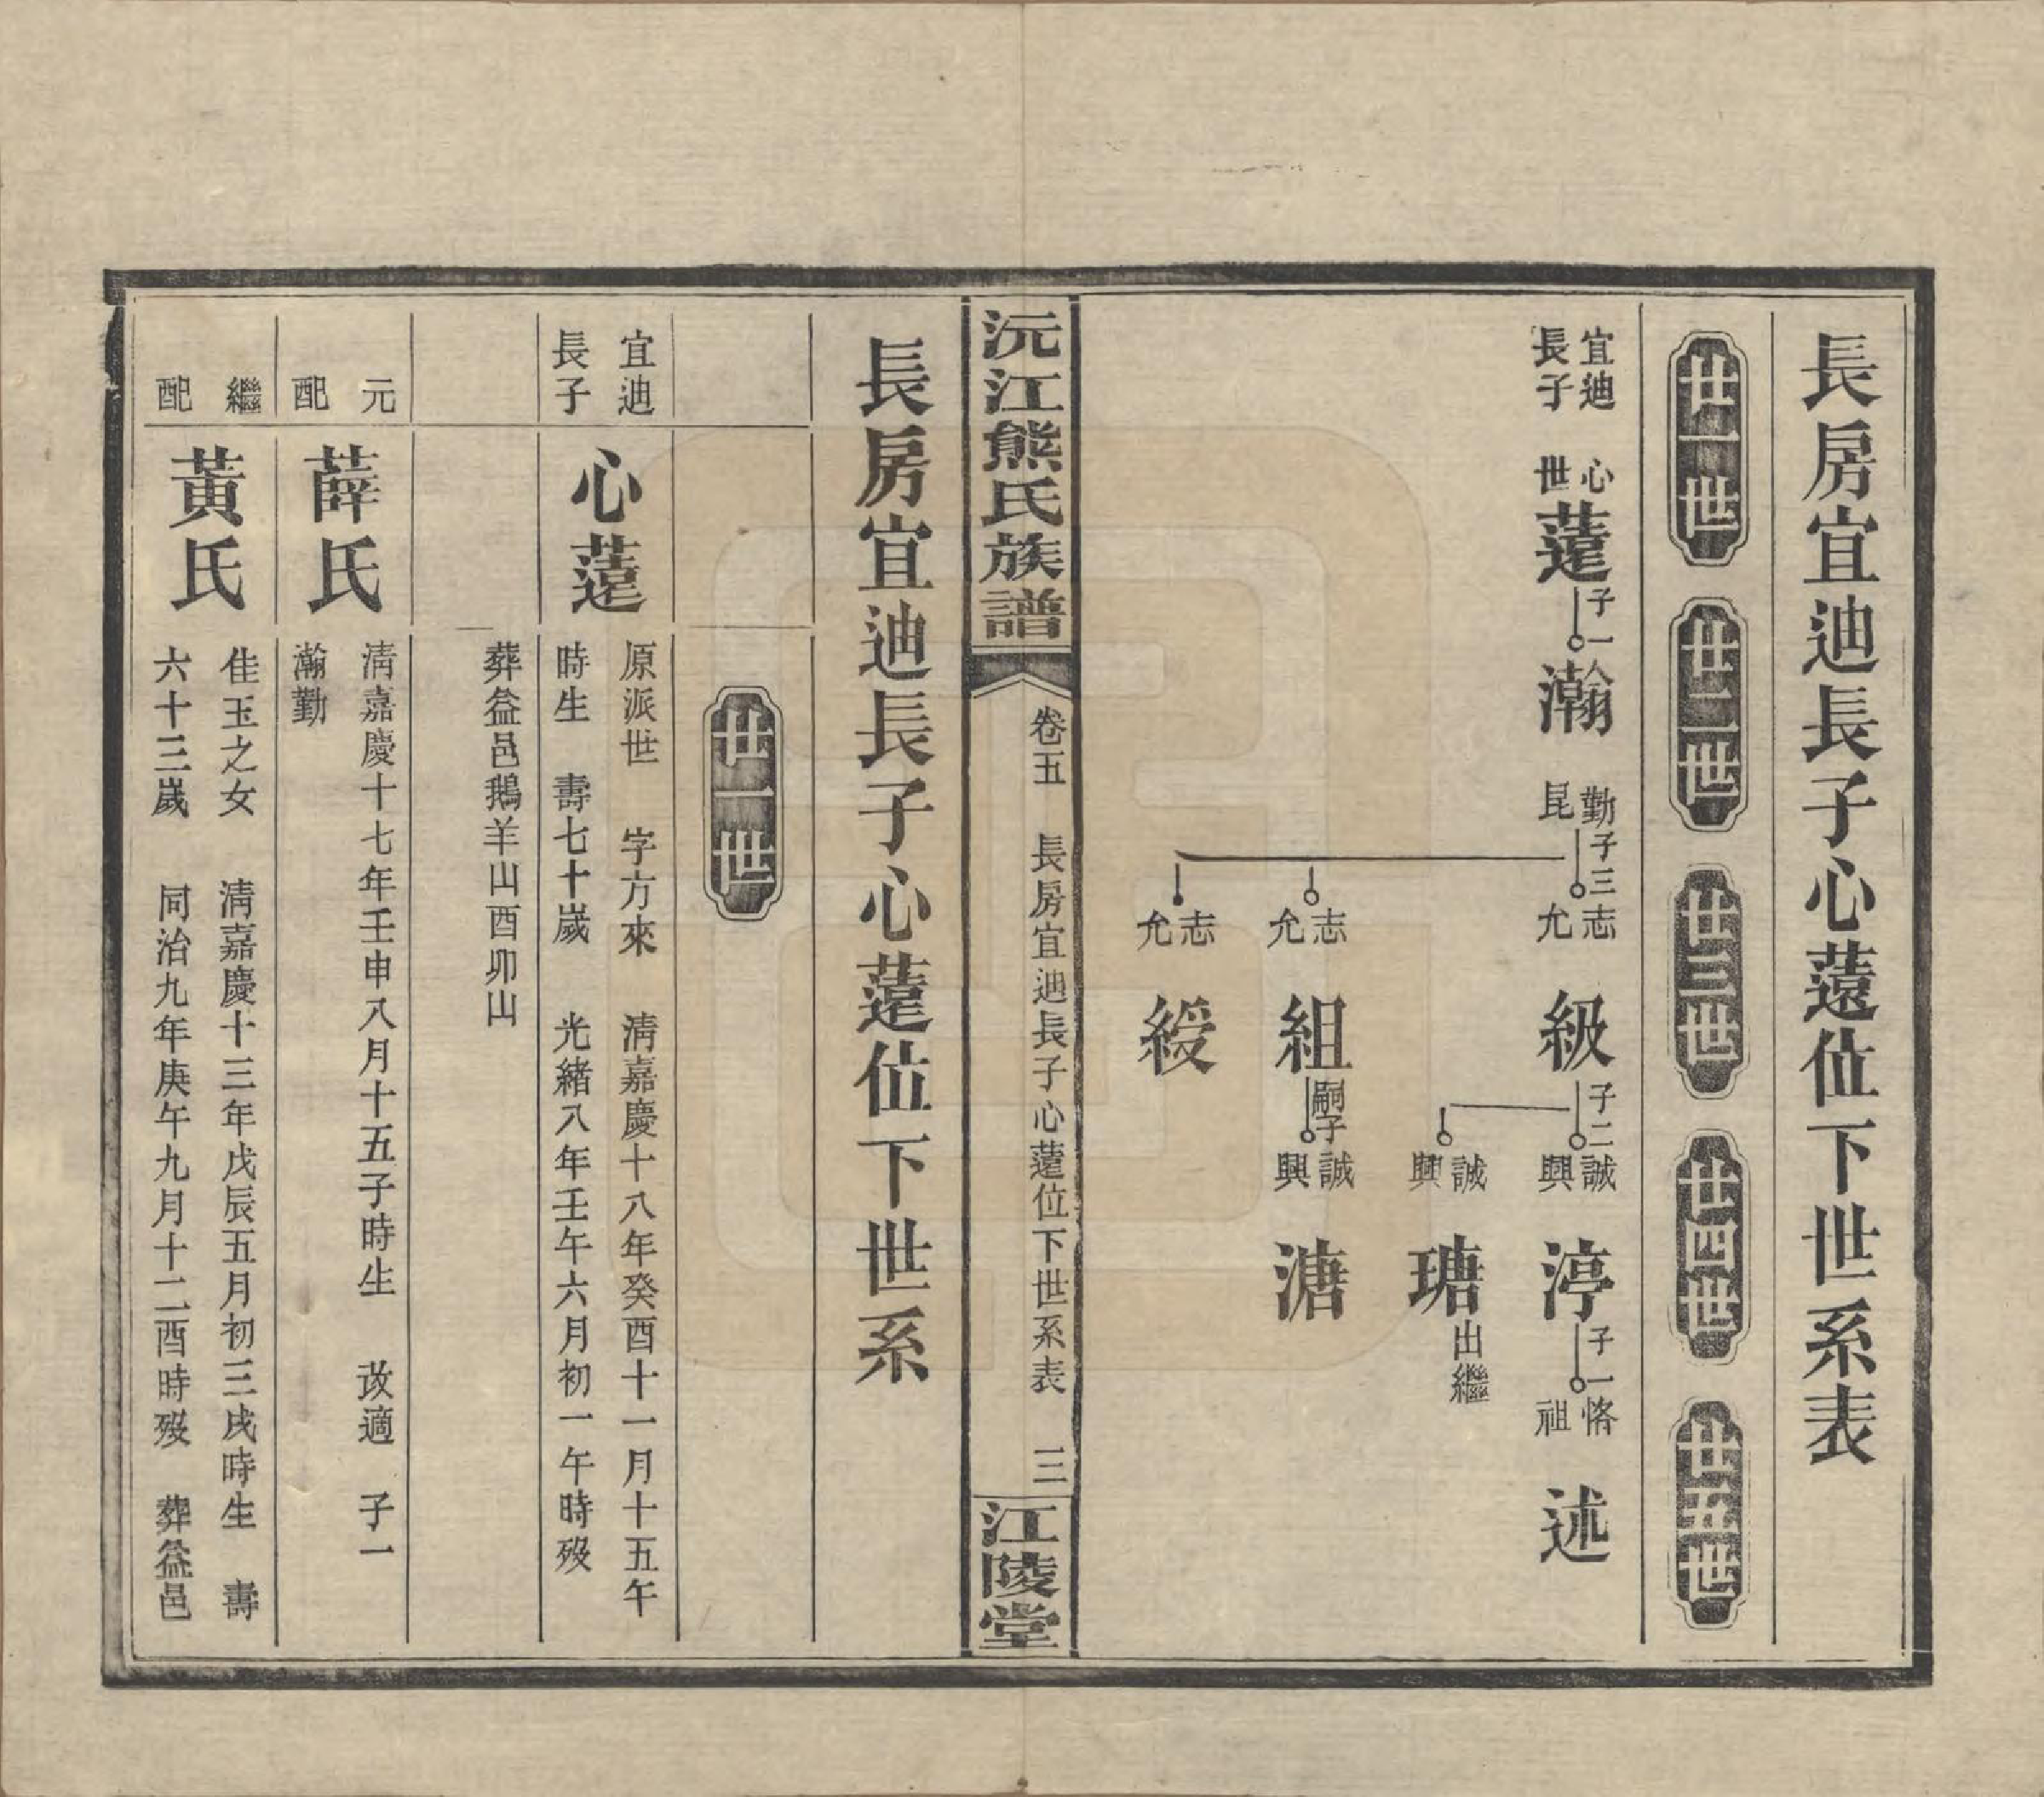 長房宜迪長子心薳位下世系表
廿一世
廿二世
廿三世
廿四世
廿五世
宜迪
長子
心
世
薳
子一
瀚
勤
昆
子三
志
允
級
子二
誠
興
渟
子一
恪
祖
述
誠
興
瑭
出繼
志
允
組
嗣子
誠
興
溏
志
允
綬
沅江熊氏族譜
卷五
長房宜迪長子心薳位下世系表
三
江陵堂
長房宜迪長子心薳位下世系
廿一世
宜迪
長子
心薳
原派世 字方來 清嘉慶十八年癸酉十一月十五午
時生 壽七十歲 光緒八年壬午六月初一午時歿
葬益邑鵝羊山酉卯山
元
配
薛氏
清嘉慶十七年壬申八月十五子時生 改適 子一
瀚勤
繼
配
黃氏
佳玉之女 清嘉慶十三年戊辰五月初三戌時生 壽
六十三歲 同治九年庚午九月十二酉時歿 葬益邑